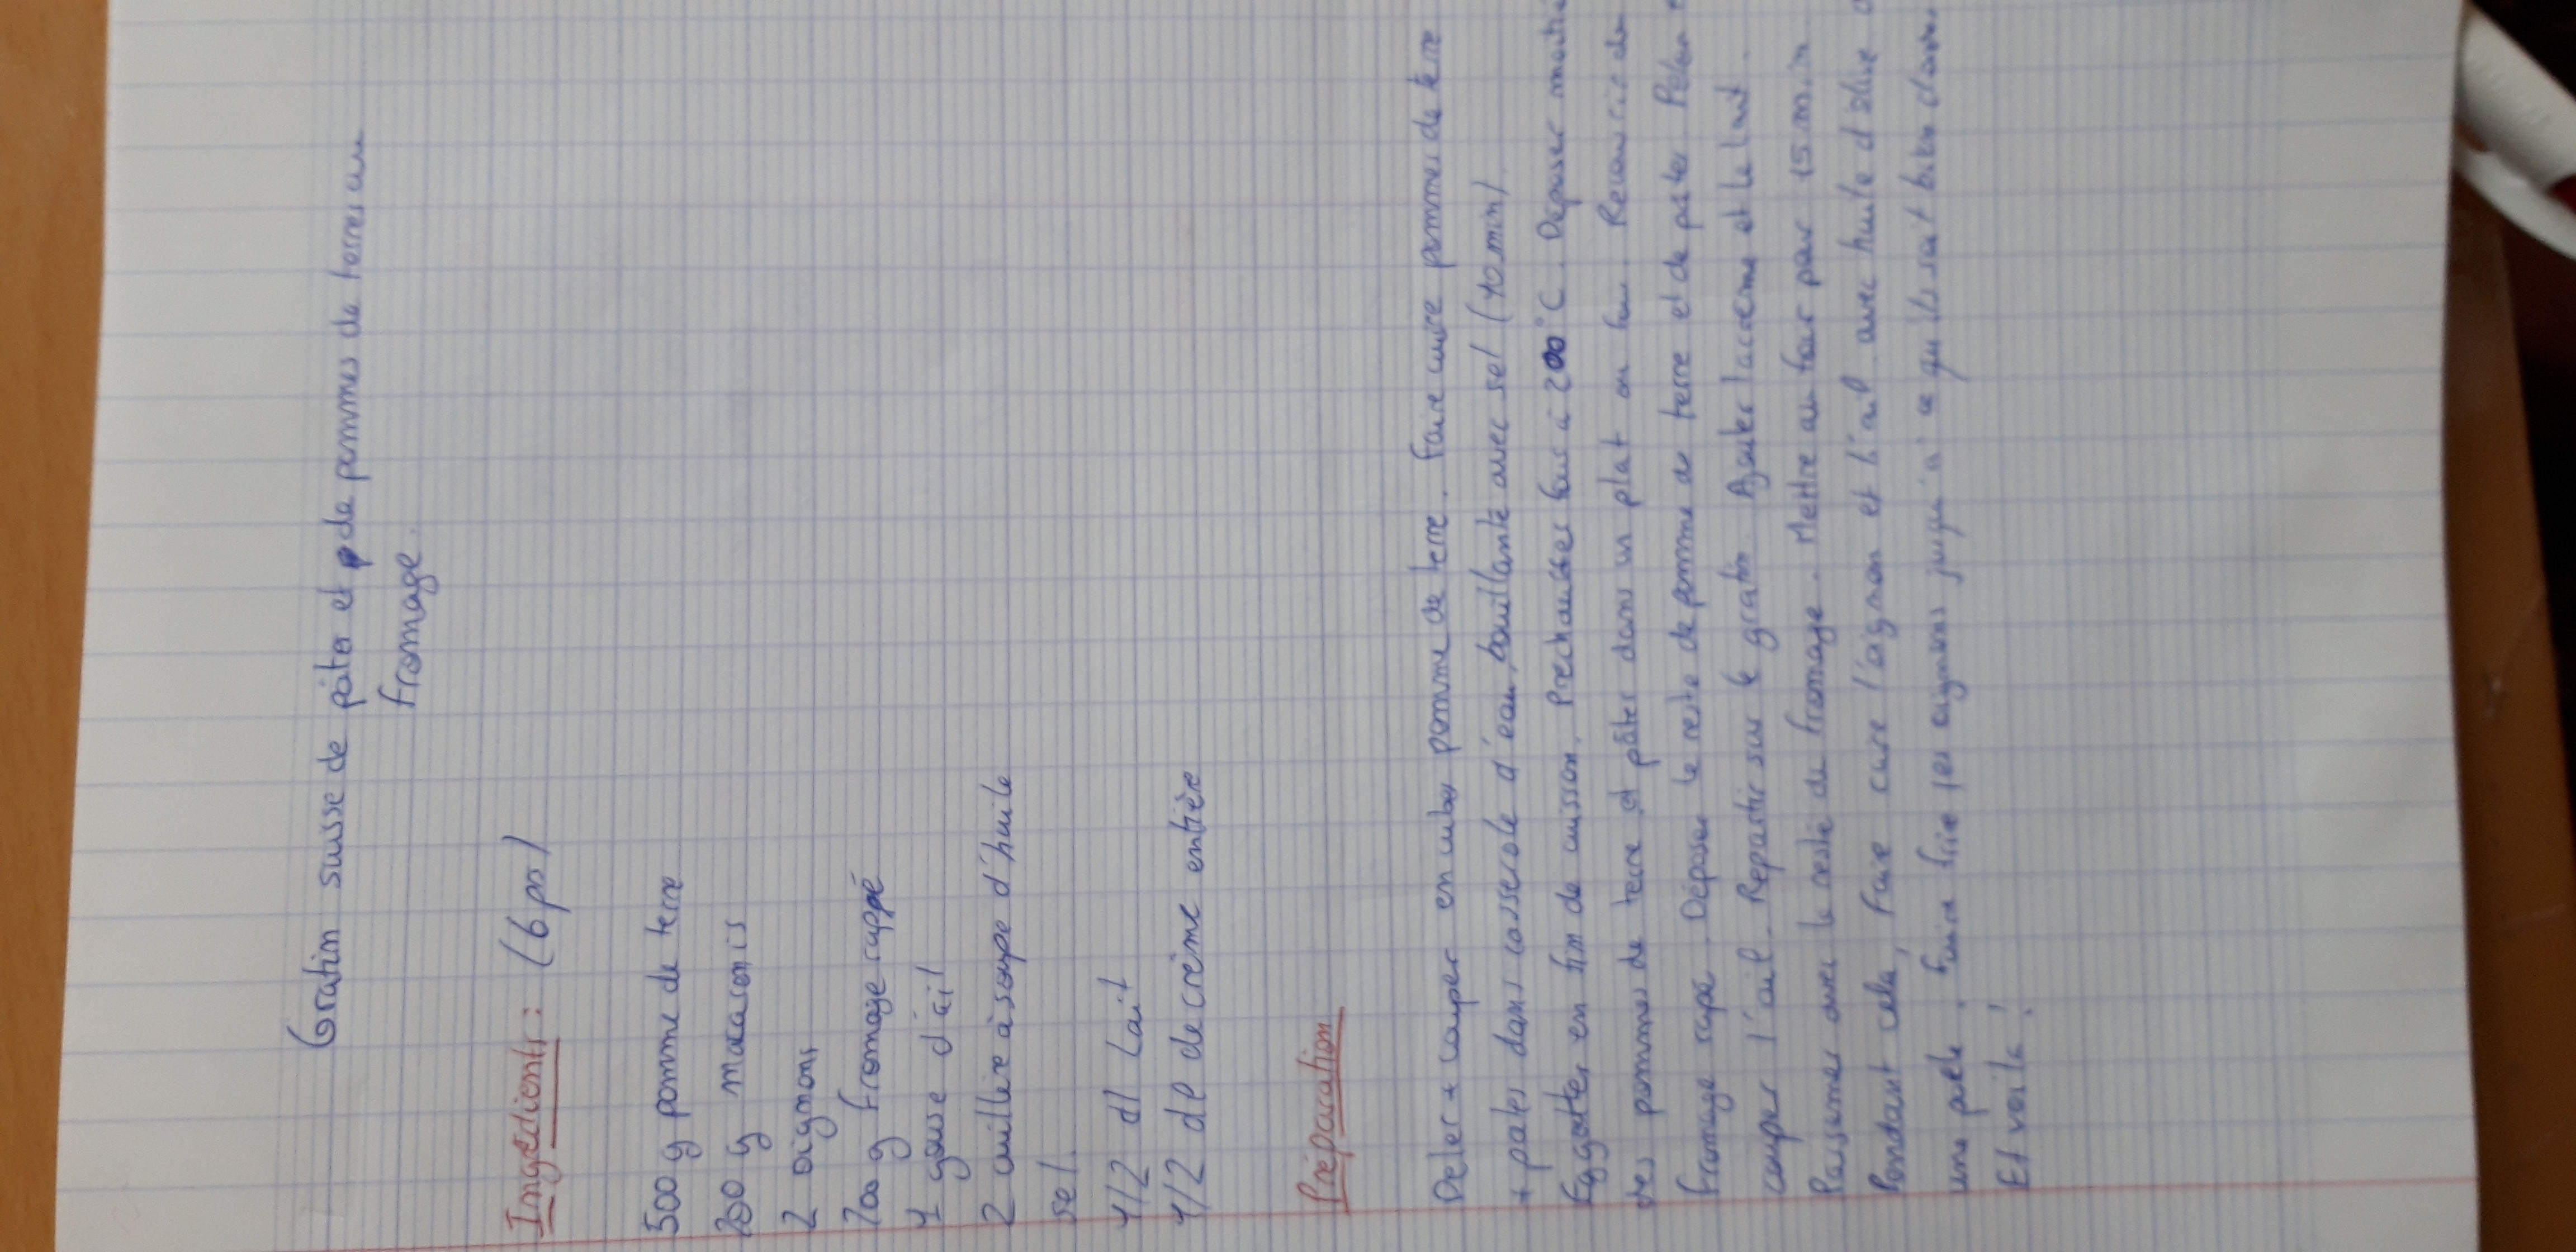 Gratin suisse de pâtes et de pommes de terres au
fromage.
Ingrédients : (6 prs)
500 g pomme de terre
250 g macaronis
2 oignons
200 g fromage rappé
1 gousse d'ail
2 cuillère à soupe d'huile
sel.
1/2 dl Lait
1/2 dl de crème entière
Préparation
Peler + couper en cubes pomme de terre. Faire cuire pommes de terre
+ pates dans casserole d'eau bouillante avec sel (10 min).
Eggoutter en fin de cuisson. Prechauffer four à 200°C. Déposer moitié
des pommes de terre et pâtes dans un plat au four. Recouvrir de
fromage rapé. Déposer le reste de pomme de terre et de pates. Peler
couper l'ail. Repartir sur le gratin. Ajouter la creme et le lait.
Parsemer avec le reste de fromage. Mettre au four pour 15 min.
Pendant cela, Faire cuire l'oignon et l'ail avec huile d'olive
une poele. Faire frire les oignons jusqu'à ce qu'ils soit bien dorés.
Et voila !